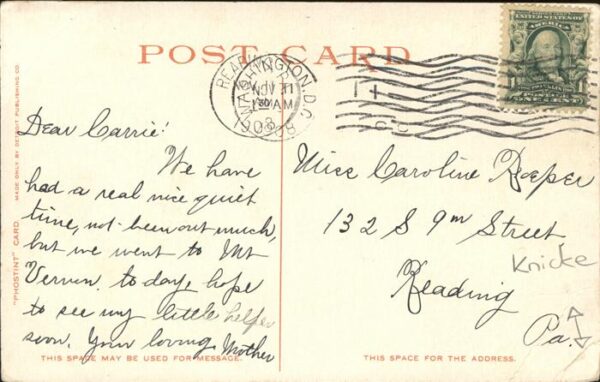 POST CARD
WASHINGTON, D.C.
NOV 11
1908
UNITED STATES OF AMERICA
ONE CENT
"PHOSTINT" CARD
MADE ONLY BY DETROIT PUBLISHING CO.
Dear Carrie!
We have
had a real nice quiet
time, not been out much,
but we went to Mt
Vernon to day, hope
to see my little helper
soon. Your loving Mother
THIS SPACE MAY BE USED FOR MESSAGE.
Miss Caroline Roeper
132 S 9th Street
Knicke
Reading
Pa.
THIS SPACE FOR THE ADDRESS.